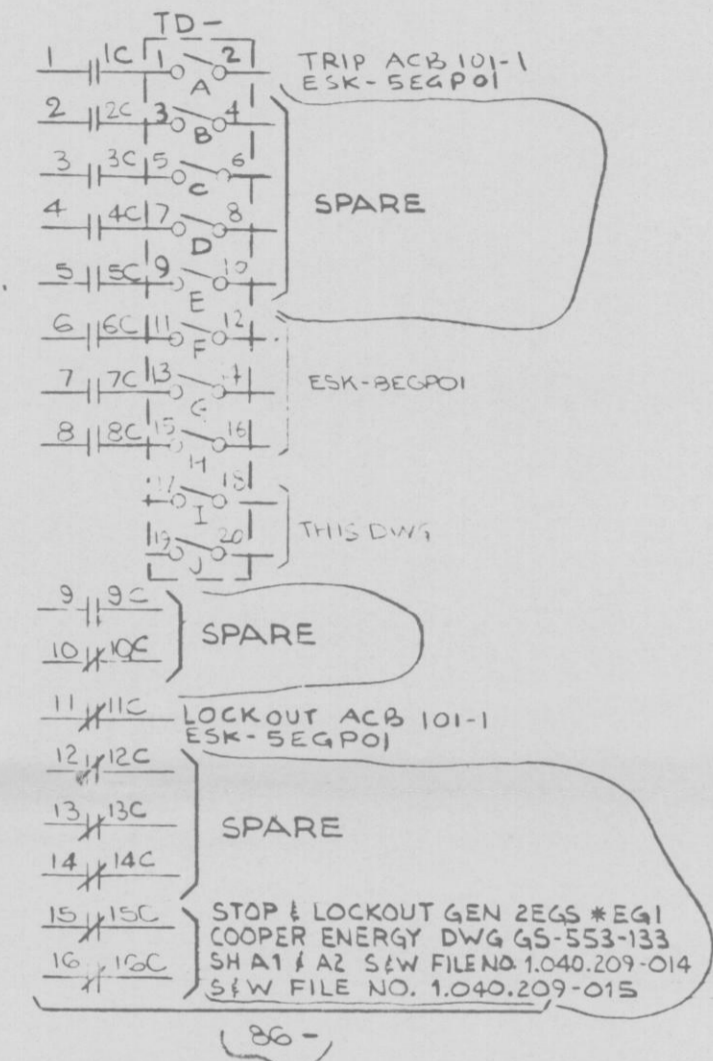 TD-
1 1C 1 2 TRIP ACB 101-1
A ESK-5EGP01
2 2C 3 4
B
3 3C 5 6
C
SPARE
4 4C 7 8
D
5 5C 9 10
E
6 6C 11 12
F
7 7C 13
G
ESK-8EGP01
8 8C 15 16
H
18
I
THIS DWG
19 20
J
9 9C
SPARE
10 10C
11 11C LOCKOUT ACB 101-1
ESK-5EGP01
12 12C
13 13C SPARE
14 14C
15 15C STOP & LOCKOUT GEN 2EGS*EG1
COOPER ENERGY DWG GS-553-133
16 16C SH A1 & A2 S&W FILE NO. 1.040.209-014
S&W FILE NO. 1.040.209-015
86-